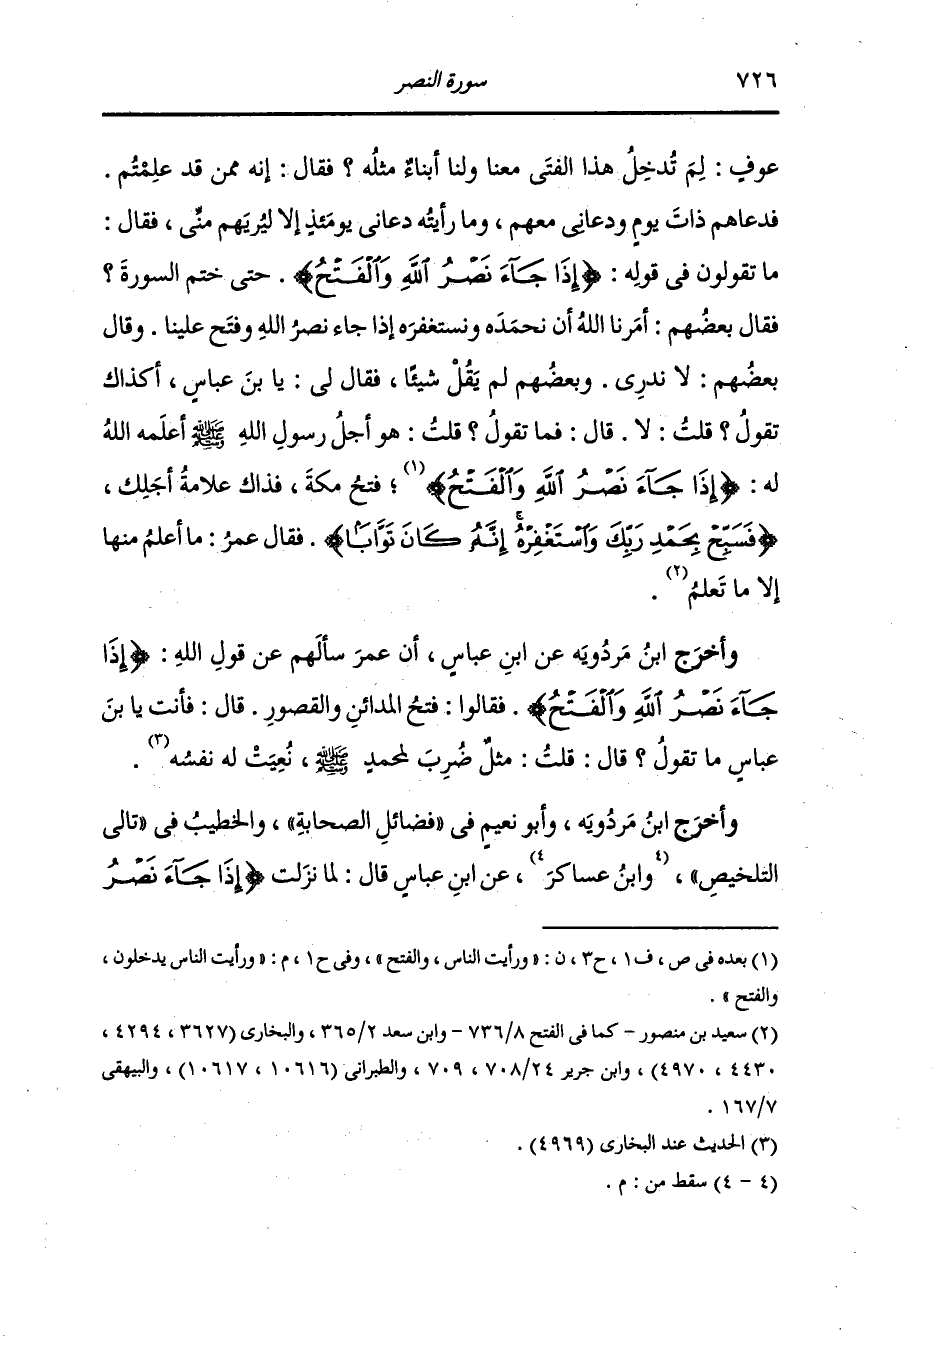 ٧٢٦ سورة النصر
عوفٍ : لِمَ تُدخِلُ هذا الفتَى معنا ولنا أبناءٌ مثلُه ؟ فقال : إنه ممن قد علِمْتُم .
فدعاهم ذاتَ يومٍ ودعانِى معهم ، وما رأيتُه دعانى يومَئذٍ إلا ليُريَهم منِّى ، فقال :
ما تقولون فى قولِه : ﴿إِذَا جَآءَ نَصْرُ ٱللَّهِ وَٱلْفَتْحُ﴾ . حتى ختم السورةَ ؟
فقال بعضُهم : أمَرنا اللهُ أن نحمَدَه ونستغفرَه إذا جاء نصرُ اللهِ وفتَح علينا . وقال
بعضُهم : لا ندرِى . وبعضُهم لم يَقُلْ شيئًا ، فقال لى : يا بنَ عباسٍ ، أكذاك
تقولُ ؟ قلتُ : لا . قال : فما تقولُ ؟ قلتُ : هو أجلُ رسولِ اللهِ ﷺ أعلَمه اللهُ
له : ﴿إِذَا جَآءَ نَصْرُ ٱللَّهِ وَٱلْفَتْحُ﴾(١) ؛ فتحُ مكةَ ، فذاك علامةُ أجَلِك ،
﴿فَسَبِّحْ بِحَمْدِ رَبِّكَ وَٱسْتَغْفِرْهُۚ إِنَّهُۥ كَانَ تَوَّابًۢا﴾ . فقال عمرُ : ما أعلمُ منها
إلا ما تَعلمُ(٢) .
وأخرَج ابنُ مَردُويَه عن ابنِ عباسٍ ، أن عمرَ سألَهم عن قولِ اللهِ : ﴿إِذَا
جَآءَ نَصْرُ ٱللَّهِ وَٱلْفَتْحُ﴾ . فقالوا : فتحُ المدائنِ والقصورِ . قال : فأنت يا بنَ
عباسٍ ما تقولُ ؟ قال : قلتُ : مثلٌ ضُرِبَ لمحمدٍ ﷺ ، نُعِيَتْ له نفسُه(٣) .
وأخرَج ابنُ مَردُويَه ، وأبو نعيمٍ فى «فضائلِ الصحابةِ» ، والخطيبُ فى «تالى
التلخيصِ» ، (٤وابنُ عساكرَ٤) ، عن ابنِ عباسٍ قال : لما نزَلت ﴿إِذَا جَآءَ نَصْرُ
(١) بعده فى ص ، ف١ ، ح٣ ، ن : «ورأيت الناس ، والفتح» ، وفى ح١ ، م : «ورأيت الناس يدخلون ،
والفتح» .
(٢) سعيد بن منصور - كما فى الفتح ٧٣٦/٨ - وابن سعد ٣٦٥/٢ ، والبخارى (٣٦٢٧ ، ٤٢٩٤ ،
٤٤٣٠ ، ٤٩٧٠) ، وابن جرير ٧٠٨/٢٤ ، ٧٠٩ ، والطبرانى (١٠٦١٦ ، ١٠٦١٧) ، والبيهقى
١٦٧/٧ .
(٣) الحديث عند البخارى (٤٩٦٩) .
(٤ - ٤) سقط من : م .